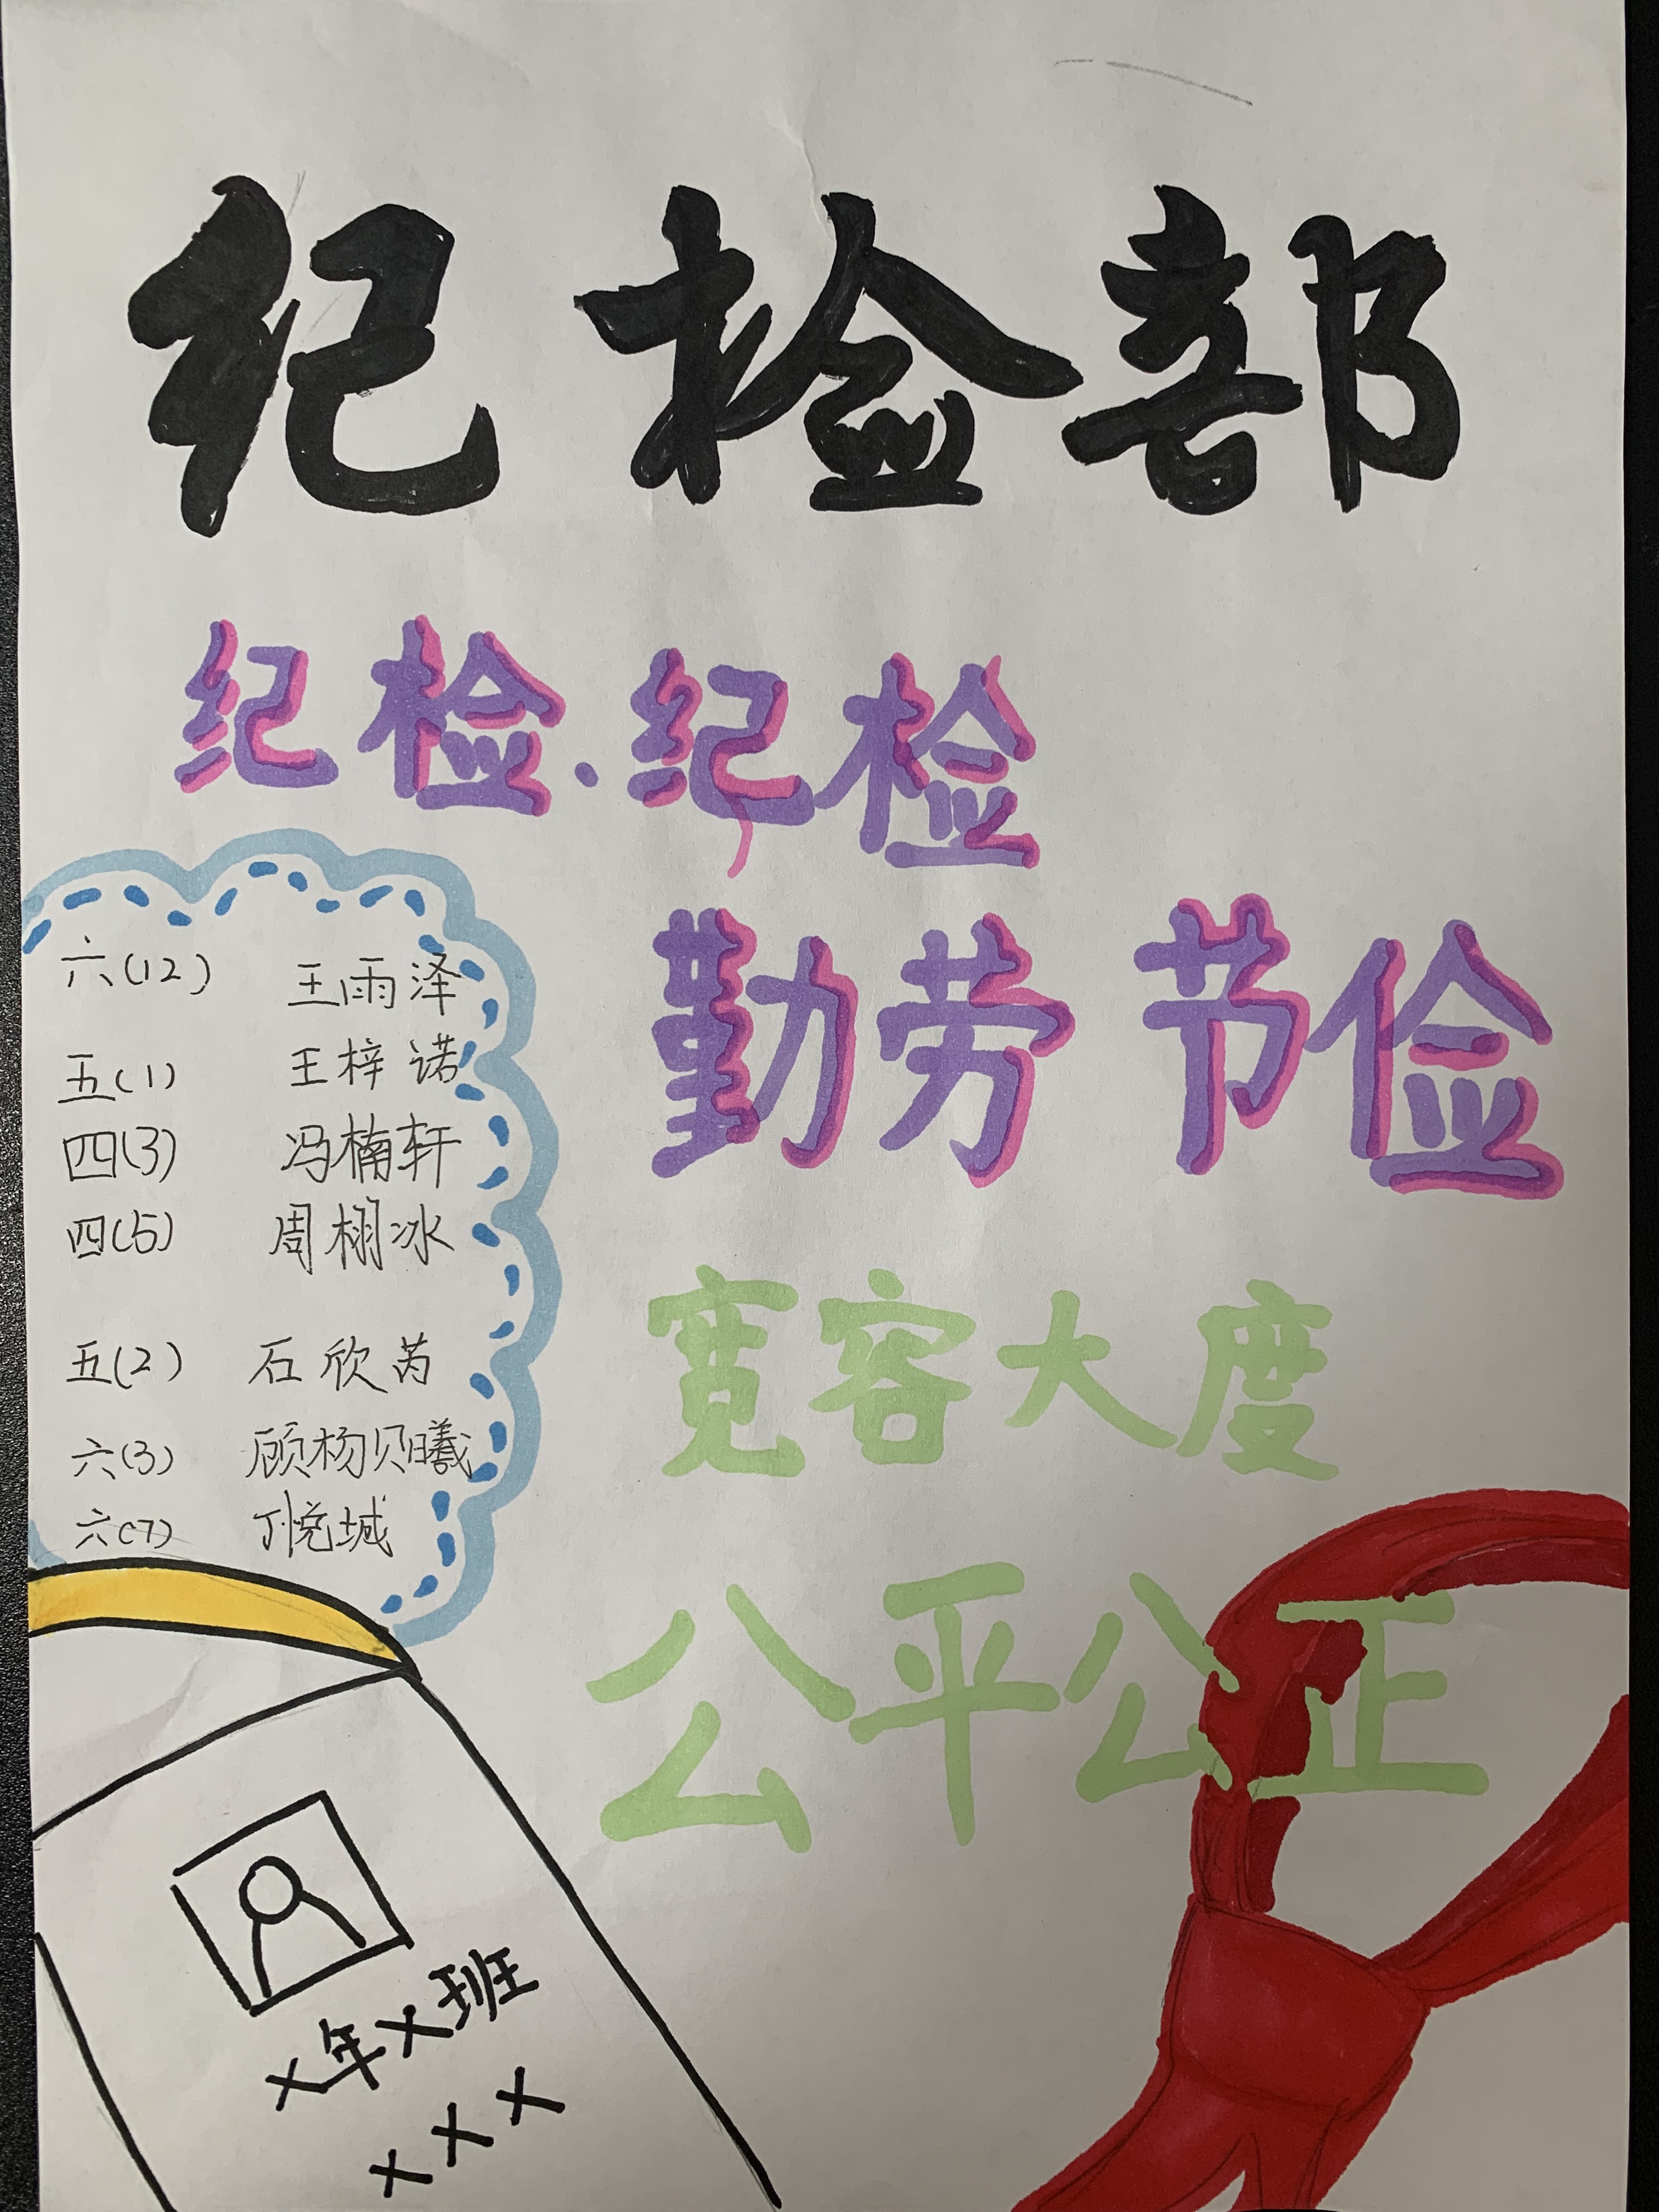 纪检部
纪检.纪检
勤劳节俭
宽容大度
公平公正
六(12) 王雨泽
五(1) 王梓诺
四(3) 冯楠轩
四(5) 周栩冰
五(2) 石欣芮
六(3) 顾杨贝曦
六(7) 丁悦城
X年X班
XXX